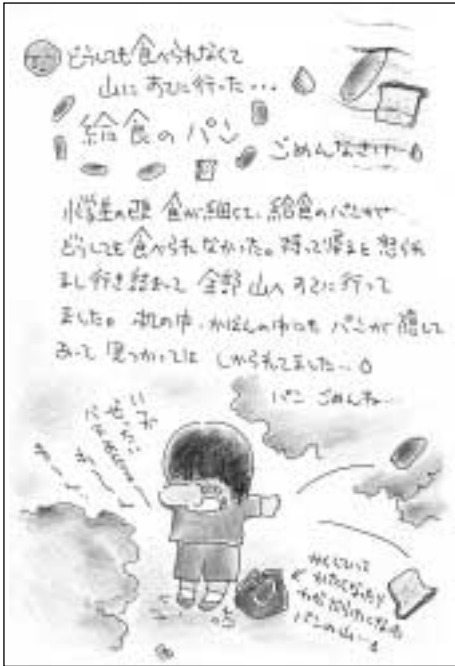 どうしても食べられなくて
山にすてに行った・・・
給食のパン
ごめんなさい…
小学生の頃 食が細くて、給食のパンが
どうしても食べられなかった。持って帰ると怒られ
るし行き詰まって 全部 山へすてに行って
ました。机の中、かばんの中にも パンが隠して
あって 見つかっては しかられてました…
パン ごめんね…
かたくなったり
パンの山…